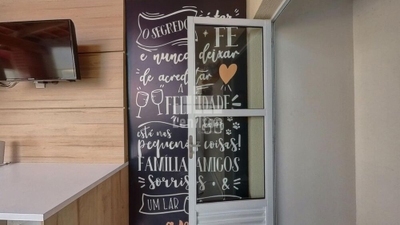 O SEGREDO
FÉ
e nunca deixar
de acreditar
A
FELICIDADE
está nas
pequenas coisas!
FAMÍLIA AMIGOS
sorrisos &
UM LAR